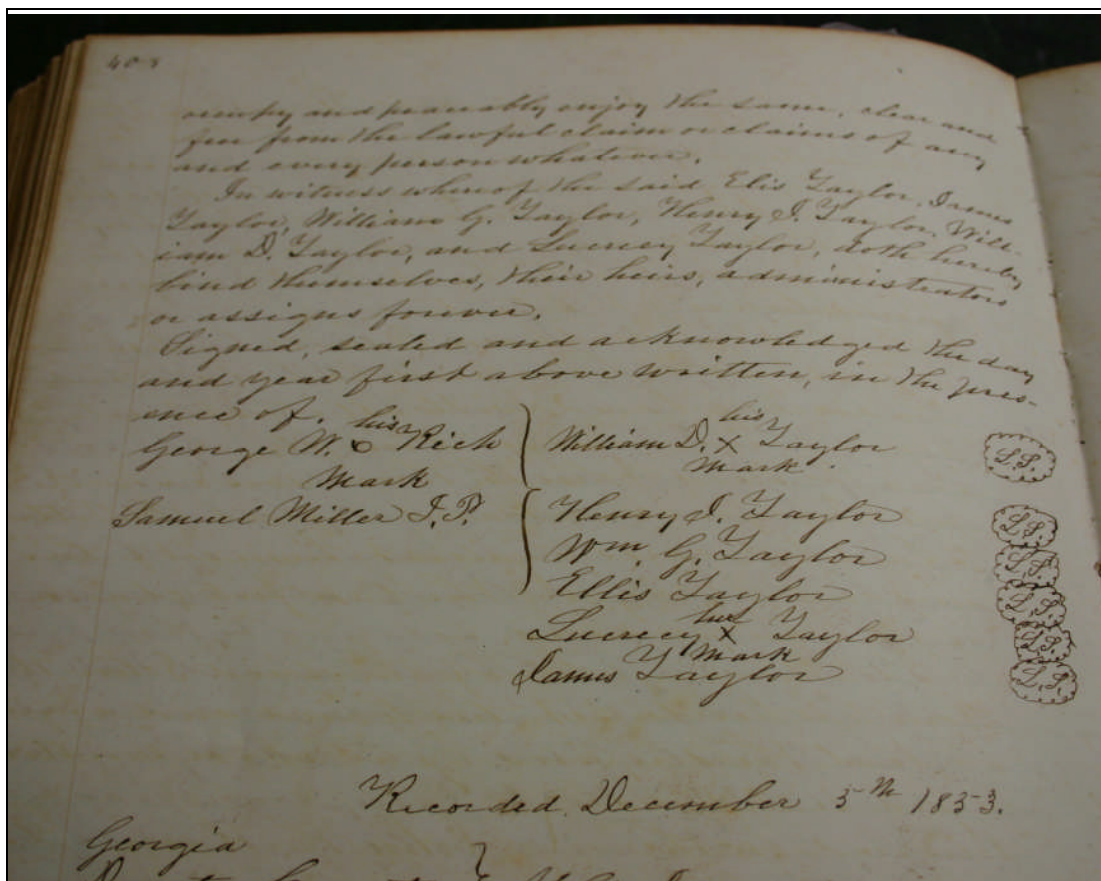 408
occupy and peaceably enjoy the same, clear and
free from the lawful claim or claims of any
and every person whatever.
In witness whereof the said Elis Taylor, James
Taylor, William G. Taylor, Henry J. Taylor, Will-
iam D. Taylor, and Lucrecy Taylor, doth hereby
bind themselves, their heirs, administrators
or assigns forever.
Signed, sealed and acknowledged the day
and year first above written, in the pres-
ence of.
his
George W. Rich
mark
Samuel Miller J.P.
his
William D. X Taylor L.S.
mark
Henry J. Taylor L.S.
Wm. G. Taylor L.S.
Ellis Taylor L.S.
her
Lucrecy X Taylor L.S.
mark
James Taylor L.S.
Recorded December 5th 1853.
Georgia